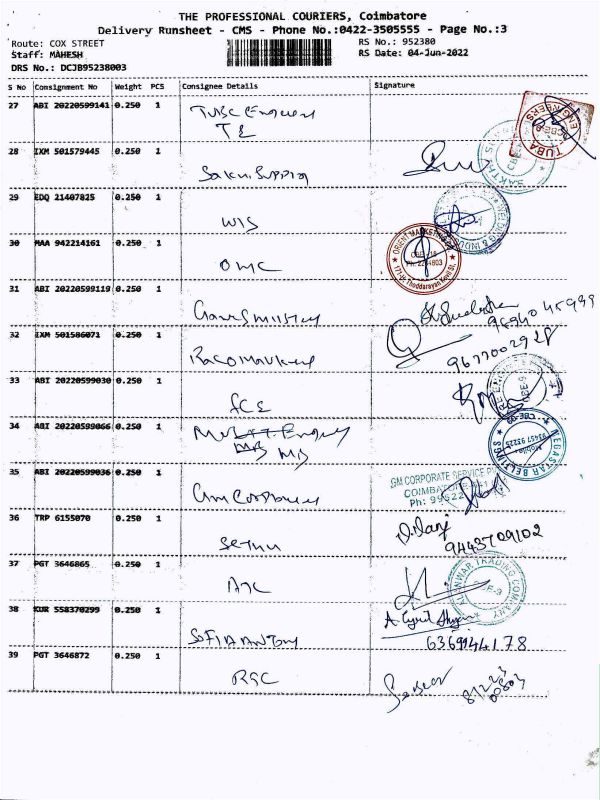 THE PROFESSIONAL COURIERS, Coimbatore
Delivery Runsheet - CMS - Phone No.:0422-3505555 - Page No.:3
Route: COX STREET RS No.: 952380
Staff: MAHESH RS Date: 04-Jun-2022
DRS No.: DCJB95238003
S No Consignment No Weight PCS Consignee Details Signature
27 ABI 20220599141 0.250 1 TUBA Engineers
T E
TUBA ENGINEERS CBE-6
28 IXM 501579445 0.250 1 Sakthi Supplia
SAKTHI CBE
29 EDQ 21407825 0.250 1 WIS
WELDING & INDU
30 MAA 942214161 0.250 1 OMC
ORIENT MARKETING CBE-18
31 ABI 20220599119 0.250 1
32 IXM 501586071 0.250 1
9677002928
33 ABI 20220599030 0.250 1 SCE
CBE-9
34 ABI 20220599066 0.250 1 MB
NEGASTAR BELTING
Mobile: 93457 95225
35 ABI 20220599036 0.250 1 Gm Corporate
GM CORPORATE SERVICE
COIMBATORE
36 TRP 6155070 0.250 1 Sethu
9443709102
37 PGT 3646865 0.250 1 ATC
ANWAR TRADING COMPANY
38 KUR 558370299 0.250 1 SOFIA ANTONY
A. Cyril
6369944178
39 PGT 3646872 0.250 1 RGC
81223
00803